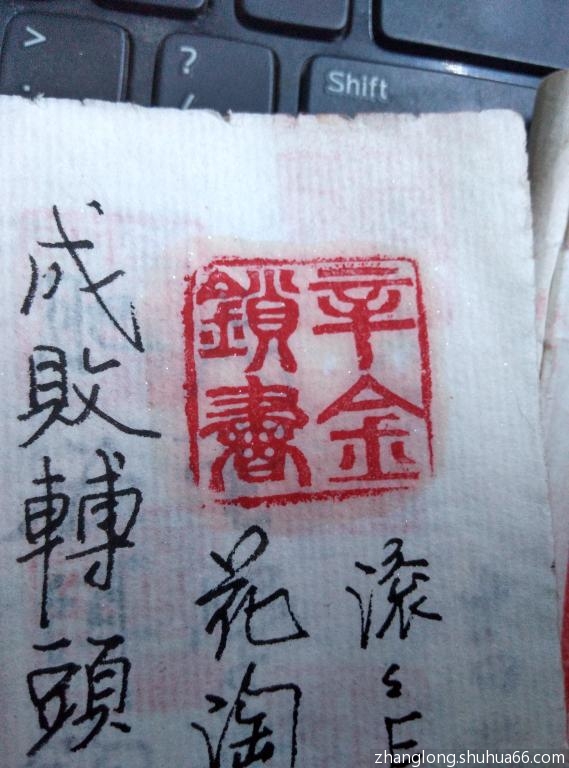 >
?
/
Shift
辛金
鎖書
滚々
花淘
成敗轉頭
zhanglong.shuhua66.com